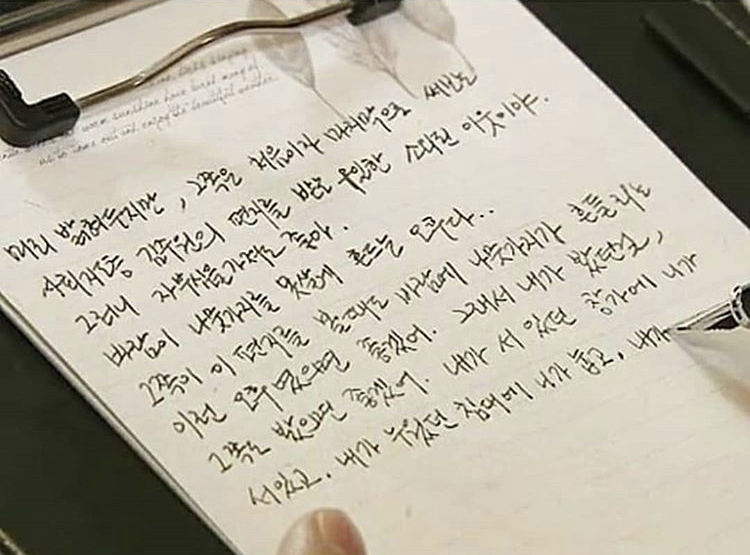 미리 밝혀두지만, 그쪽은 처음이자 마지막으로 써보는
사회지도층 김주원의 편지를 받은 유일한 소외된 이웃이야.
그러니 자부심을가져도 좋아.
바람이 나뭇가지를 못살게 흔드는 오후다..
그쪽이 이 편지를 볼때도 바람에 나뭇가지가 흔들리는
이런 오후였으면 좋겠어. 그래서 내가 봤던걸,
그쪽도 봤으면 좋겠어. 내가 서 있던 창가에 니가
서있고. 내가 누웠던 침대에 니가 눕고. 내가